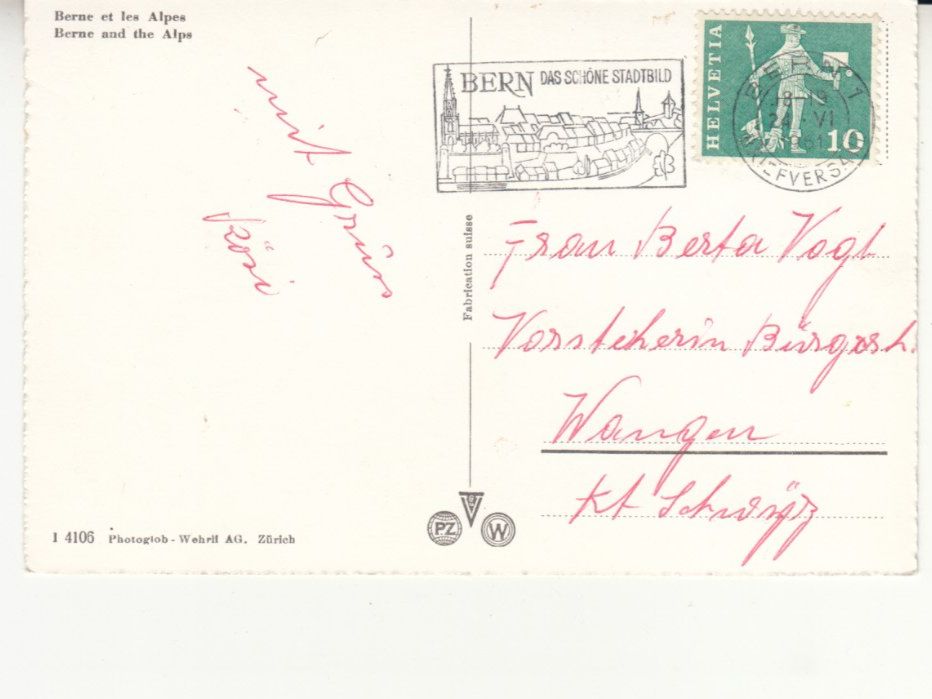 Berne et les Alpes
Berne and the Alps
mit Gruss
Rösi
Fabrication suisse
BERN DAS SCHÖNE STADTBILD
HELVETIA
10
BERN 1
24.VI
BRIEFVERSAND
Frau Berta Vogt
Vorsteherin Bürgersh.
Wangen
Kt Schwyz
I 4106 Photoglob-Wehrli AG. Zürich
PZ
V
W